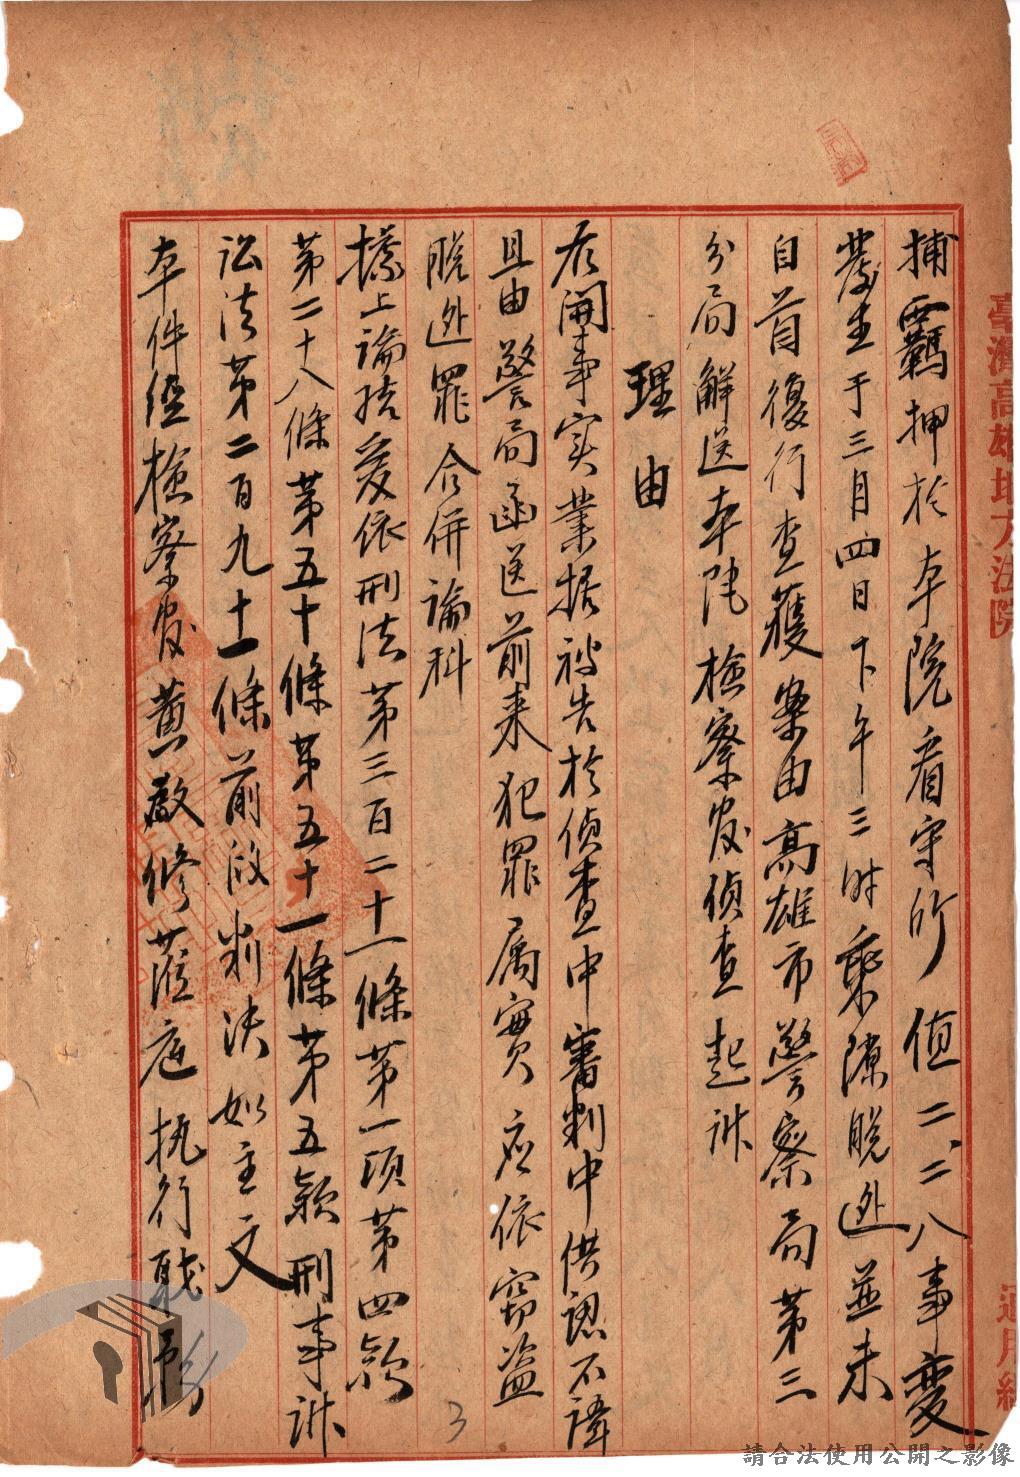 捕羈押於本院看守所值二、二八事變
發生于三月四日下午三時乘隙脫逃並未
自首復行查獲案由高雄市警察局第三
分局解送本院檢察處偵查起訴
理由
右開事实業据被告於偵查中審判中供認不諱
且由警局函送前来犯罪属實应依竊盜
脫逃罪合併論科
據上論结爰依刑法第三百二十一條第一項第四款
第二十八條第五十條第五十一條第五款刑事訴
訟法第二百九十一條前段判決如主文
本件經檢察官黃啟修蒞庭执行职務
臺灣高雄地方法院
通用紙
3
請合法使用公開之影像